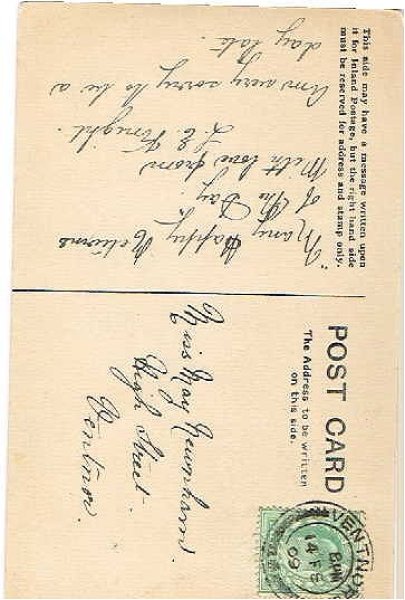 This side may have a message written upon
it for Inland Postage, but the right hand side
must be reserved for address and stamp only.
"Many Happy Returns
of the Day.
With love from
L. E. Knight.
Am very sorry to be a
day late.
POST CARD
The Address to be written
on this side.
Miss May Newnham.
High Street.
Ventnor.
VENTNOR
14 FE
09